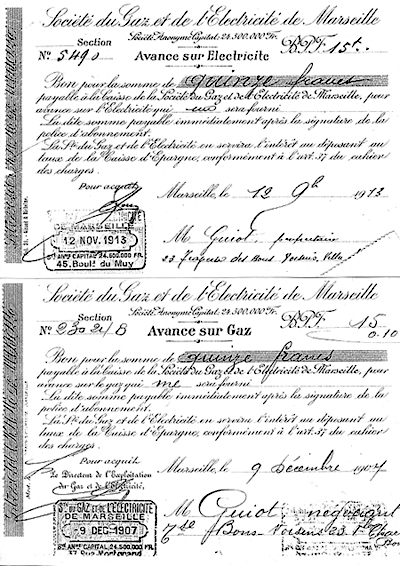 Société du Gaz et de l'Electricité de Marseille
Société Anonyme Capital: 24.500.000 Fr.
Section
No 5490 Avance sur Electricité B.P.F. 15f.
Bon pour la somme de quinze francs
payable à la Caisse de la Société du Gaz et de l'Electricité de Marseille, pour
avance sur l'Electricité qui sera fourni.
La dite somme payable immédiatement après la signature de la
police d'abonnement.
La Sté du Gaz et de l'Electricité en servira l'intérêt au déposant au
taux de la Caisse d'Epargne, conformément à l'art. 37 du cahier
des charges.
Pour acquit
Marseille, le 12 9b 1913
DE MARSEILLE
12 NOV. 1913
Sté ANme CAPITAL 24.500.000 FR.
45. Boul. du Muy
M Guiot, propriétaire
23
Société du Gaz et de l'Electricité de Marseille
Société Anonyme Capital: 24.500.000 Fr.
Section
No 230 24/B Avance sur Gaz B.P.F. 15
0.10
Bon pour la somme de quinze francs
payable à la Caisse de la Société du Gaz et de l'Electricité de Marseille, pour
avance sur le gaz qui me sera fourni.
La dite somme payable immédiatement après la signature de la
police d'abonnement.
La Sté du Gaz et de l'Electricité en servira l'intérêt au déposant au
taux de la Caisse d'Epargne, conformément à l'art. 37 du cahier
des charges.
Pour acquit
Le Directeur de l'Exploitation
du Gaz et de l'Electricité,
Marseille, le 9 décembre 1907
Sté DU GAZ ET DE L'ELECTRICITÉ
DE MARSEILLE
9 DEC. 1907
Sté ANme CAPITAL 24.500.000 FR.
M Guiot négociant
Bons Voisins 23